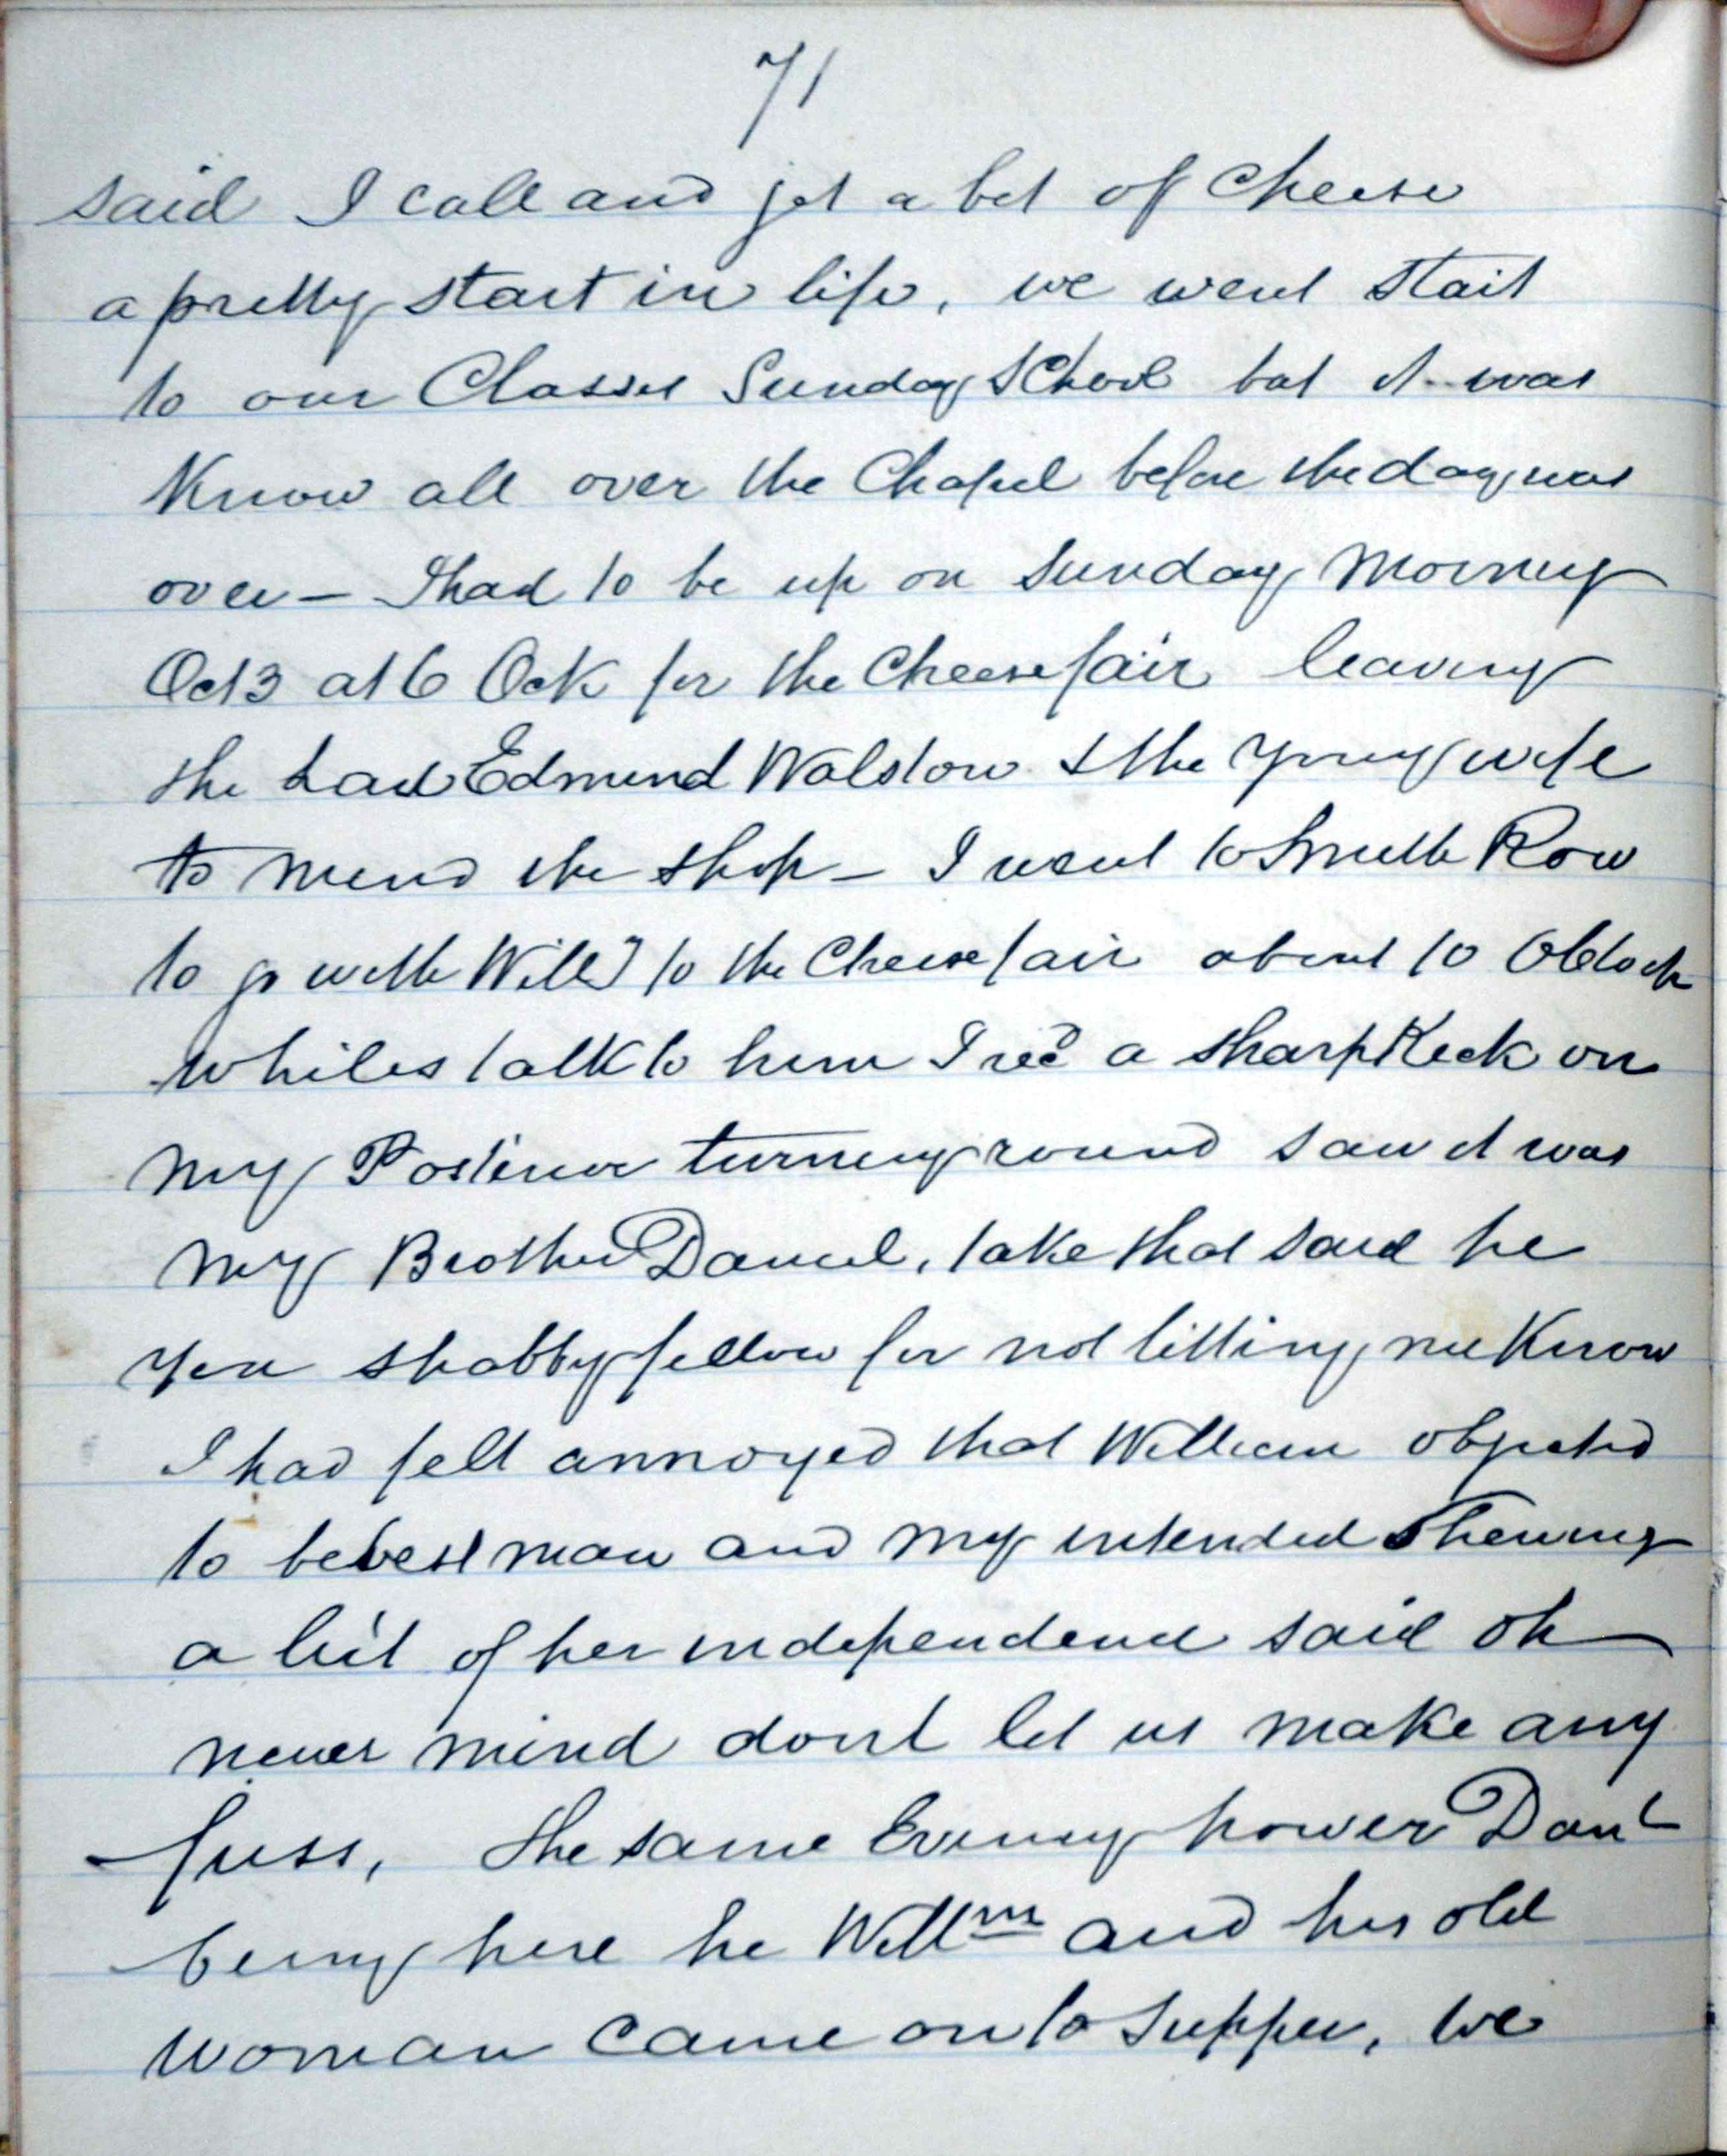 71
said I call and get a bit of Cheese
a pretty start in life, we went stait
to our Classes Sunday School but it was
Know all over the Chapel before the day was
over — I had to be up on Sunday Morning
Oct 3 at 6 Ock for the Cheese fair leaving
the Lad Edmund Walslow & the young wife
to mind the shop — I went to Smith Row
to go with Will to the Cheese fair about 10 Oclock
whiles talk to him I recd a sharp Keck on
my Posterior turning round saw it was
my Brother Daniel, take that said he
you shabby fellow for not litting me Know
I had felt annoyed that William objected
to be best man and my intended Shewing
a bit of her independence said oh
never mind dont let us make any
fuss, the same Evening hower Danl
being here he Willm and his old
woman came on to Supper, we